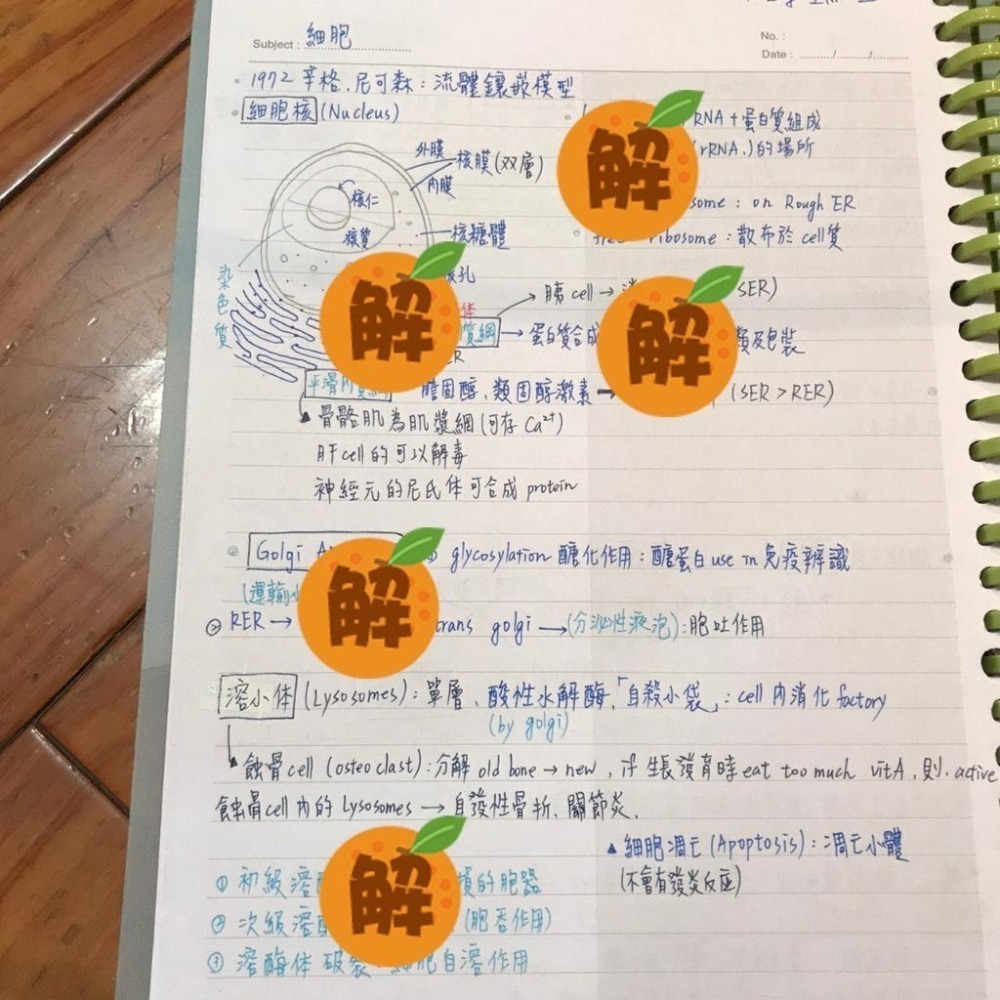 Subject : 細胞
No. :
Date : ......./......./.......
1972 辛格、尼可森：流體鑲嵌模型
細胞核 (Nucleus)
RNA + 蛋白質組成
(rRNA.) 的場所
some : on Rough ER
ribosome : 散布於 cell 質
外膜 核膜 (双層)
內膜
核仁
核質
核糖體
染色質
孔
解
解
解
胰 cell →
(SER)
質網 → 蛋白質合成
類及包裝
平滑內質
膽固醇、類固醇激素 →
(SER > RER)
▲ 骨骼肌為肌漿網 (可存 Ca²⁺)
肝 cell 的可以解毒
神經元的尼氏体可合成 protein
Golgi
glycosylation 醣化作用：醣蛋白 use in 免疫辨識
(運輸小
解
② RER →
trans golgi → (分泌性液泡)：胞吐作用
溶小体 (Lysosomes)：單層、酸性水解酶、「自殺小袋」：cell 內消化 factory
(by golgi)
▲ 蝕骨 cell (osteoclast)：分解 old bone → new , if 生長發育時 eat too much vitA , 則 . active
蝕骨 cell 內的 Lysosomes → 自發性骨折、關節炎.
▲ 細胞凋亡 (Apoptosis)：凋亡小體
(不會有發炎反應)
解
① 初級溶
的胞器
② 次級溶
(胞吞作用)
③ 溶酶体 破裂 細胞自溶作用